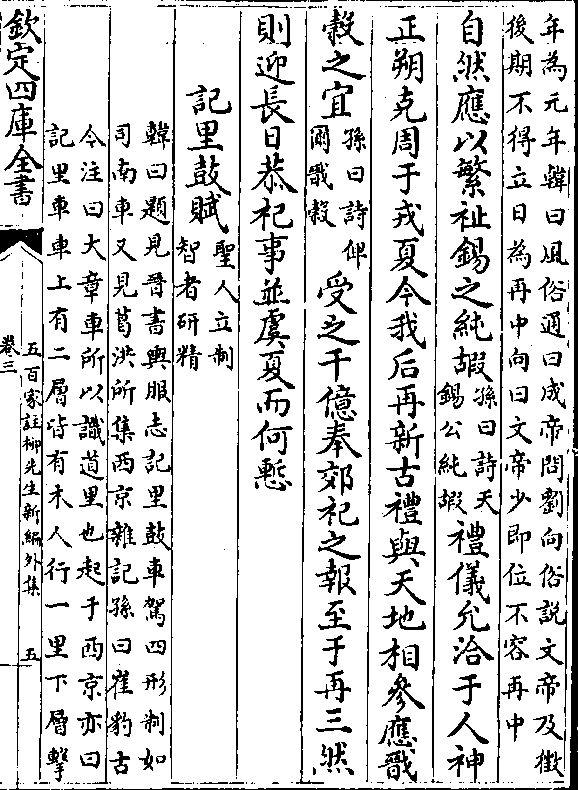 年為元年韓曰風俗通曰成帝問劉向俗說文帝及徴
後期不得立日為再中向曰文帝少即位不容再中
自然應以繁祉錫之純嘏
孫曰詩天
錫公純嘏
禮儀允洽于人神
正朔克周于戎夏今我后再新古禮與天地相參應戩
榖之宜
孫曰詩俾
爾戩榖
受之千億奉郊祀之報至于再三然
則迎長日恭祀事並虞夏而何慙
記里鼓賦
聖人立制
智者研精
韓曰題見晉書輿服志記里鼓車駕四形制如
司南車又見葛洪所集西京雜記孫曰崔豹古
今注曰大章車所以識道里也起于西京亦曰
記里車車上有二層皆有木人行一里下層擊
欽定四庫全書
五百家註柳先生新編外集
卷三
五